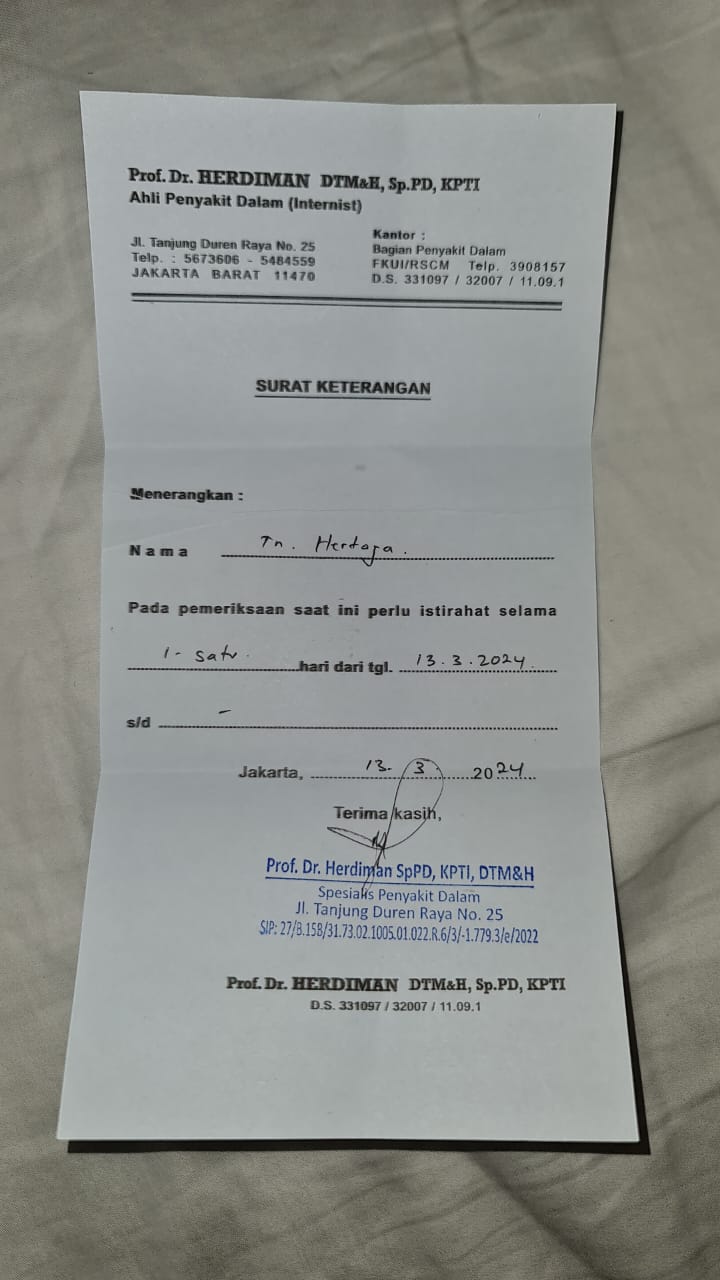 Prof. Dr. HERDIMAN DTM&H, Sp.PD, KPTI
Ahli Penyakit Dalam (Internist)
Jl. Tanjung Duren Raya No. 25
Telp. : 5673606 - 5484559
JAKARTA BARAT 11470
Kantor :
Bagian Penyakit Dalam
FKUI/RSCM Telp. 3908157
D.S. 331097 / 32007 / 11.09.1
SURAT KETERANGAN
Menerangkan :
Nama Tn. Herdoja.
Pada pemeriksaan saat ini perlu istirahat selama
1- satu hari dari tgl. 13.3.2024
s/d -
Jakarta, 13. 3. 2024
Terima kasih,
Prof. Dr. Herdiman SpPD, KPTI, DTM&H
Spesialis Penyakit Dalam
Jl. Tanjung Duren Raya No. 25
SIP: 27/B.15B/31.73.02.1005.01.022.R.6/3/-1.779.3/e/2022
Prof. Dr. HERDIMAN DTM&H, Sp.PD, KPTI
D.S. 331097 / 32007 / 11.09.1